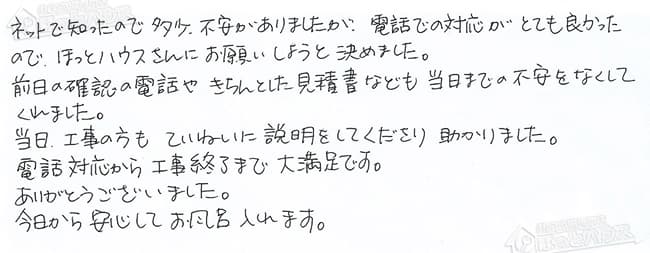 ネットで知ったので多少、不安がありましたが、電話での対応がとても良かった
ので、ほっとハウスさんにお願いしようと決めました。
前日の確認の電話や きちんとした見積書なども 当日までの不安をなくして
くれました。
当日、工事の方も ていねいに説明をしてくださり 助かりました。
電話対応から工事終了まで 大満足です。
ありがとうございました。
今日から 安心してお風呂入れます。